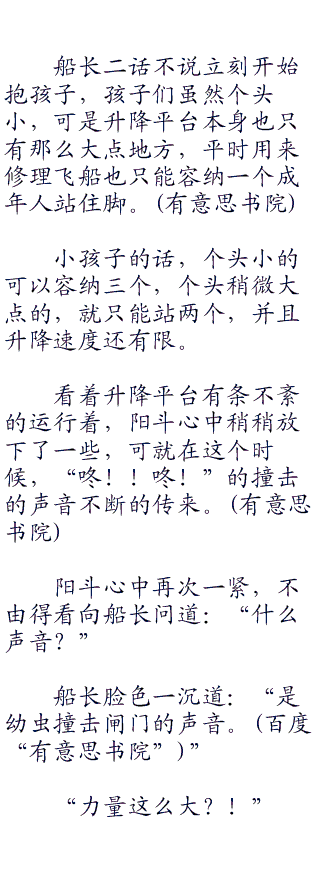 船长二话不说立刻开始
抱孩子，孩子们虽然个头
小，可是升降平台本身也只
有那么大点地方，平时用来
修理飞船也只能容纳一个成
年人站住脚。(有意思书院)
小孩子的话，个头小的
可以容纳三个，个头稍微大
点的，就只能站两个，并且
升降速度还有限。
看着升降平台有条不紊
的运行着，阳斗心中稍稍放
下了一些，可就在这个时
候，“咚！！咚！”的撞击
的声音不断的传来。(有意思
书院)
阳斗心中再次一紧，不
由得看向船长问道：“什么
声音？”
船长脸色一沉道：“是
幼虫撞击闸门的声音。(百度
“有意思书院”)”
“力量这么大？！”